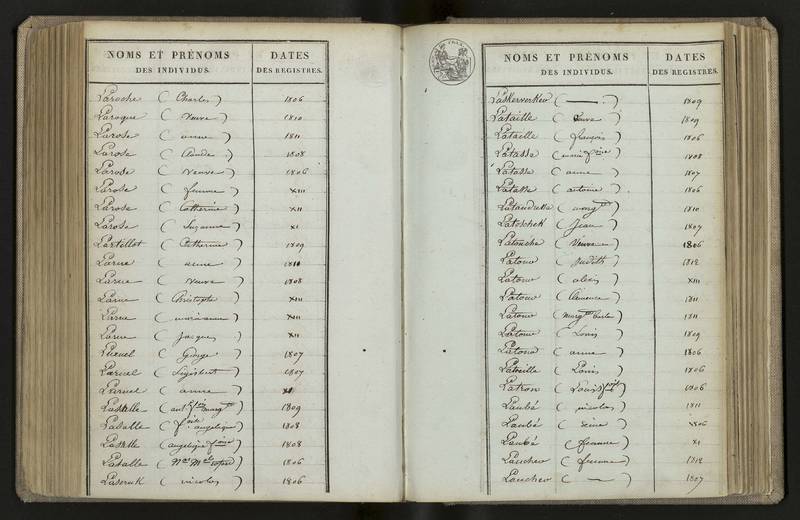 NOMS ET PRÉNOMS DES INDIVIDUS. DATES DES REGISTRES.
Laroche ( Charles ) 1806
Laroque ( Veuve ) 1810
Larose ( anne ) 1811
Larose ( Claude ) 1808
Larose ( Veuve ) 1806
Larose ( femme ) XIII
Larose ( Catherine ) XII
Larose ( Suzanne ) XI
Lartillot ( Catherine ) 1809
Larue ( ) 1810
Larue ( Veuve ) 1808
Larue ( Christophe ) XIII
Larue ( marianne ) XIII
Larue ( Jacques ) XII
( George ) 1807
Laruel ( Sigisbert ) 1807
Laruel ( anne )
Lasalle 1809
Lasalle ( angelique ) 1808
Lasalle ( angelique ) 1808
Lasalle 1806
( nicolas ) 1806
NOMS ET PRÉNOMS DES INDIVIDUS. DATES DES REGISTRES.
( — ) 1809
Lataille ( Veuve ) 1809
Lataille ( françois ) 1806
Latasse 1808
Latasse ( anne ) 1807
Latasse ( antoine ) 1806
1810
( Jean ) 1807
Latouche ( Veuve ) 1806
Latour ( Judith ) 1812
Latour ( alexis ) XIII
Latour ( Clemence ) 1811
Latour 1811
Latour ( Louis ) 1809
Latour ( anne ) 1806
( Louis ) 1806
Latron ( Louis ) 1806
Laubé ( nicolas ) 1811
Laubé 1806
Laubé ( femme ) XI
Laucher ( femme ) 1812
Laucher ( — ) 1807